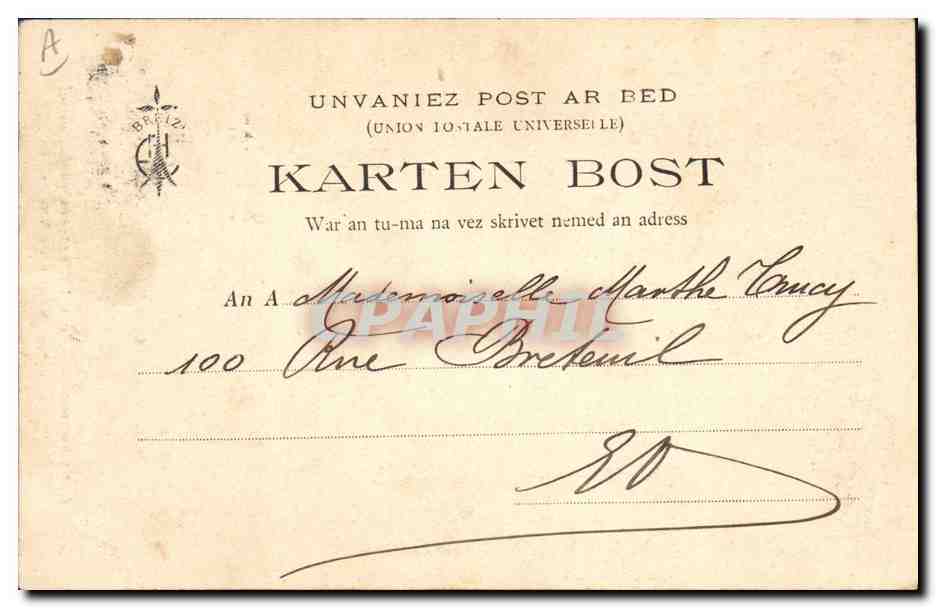 A
BREIZ
UNVANIEZ POST AR BED
(UNION POSTALE UNIVERSELLE)
KARTEN BOST
War an tu-ma na vez skrivet nemed an adress
An A Mademoiselle Marthe
CPAPHIL
100 Rue Breteuil
EV